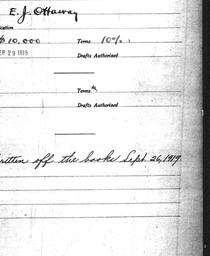 E. J. Ottaway
$10,000 Terms 10%
SEP 29 1919
Drafts Authorized
Terms
Drafts Authorized
written off the books Sept 26, 1919